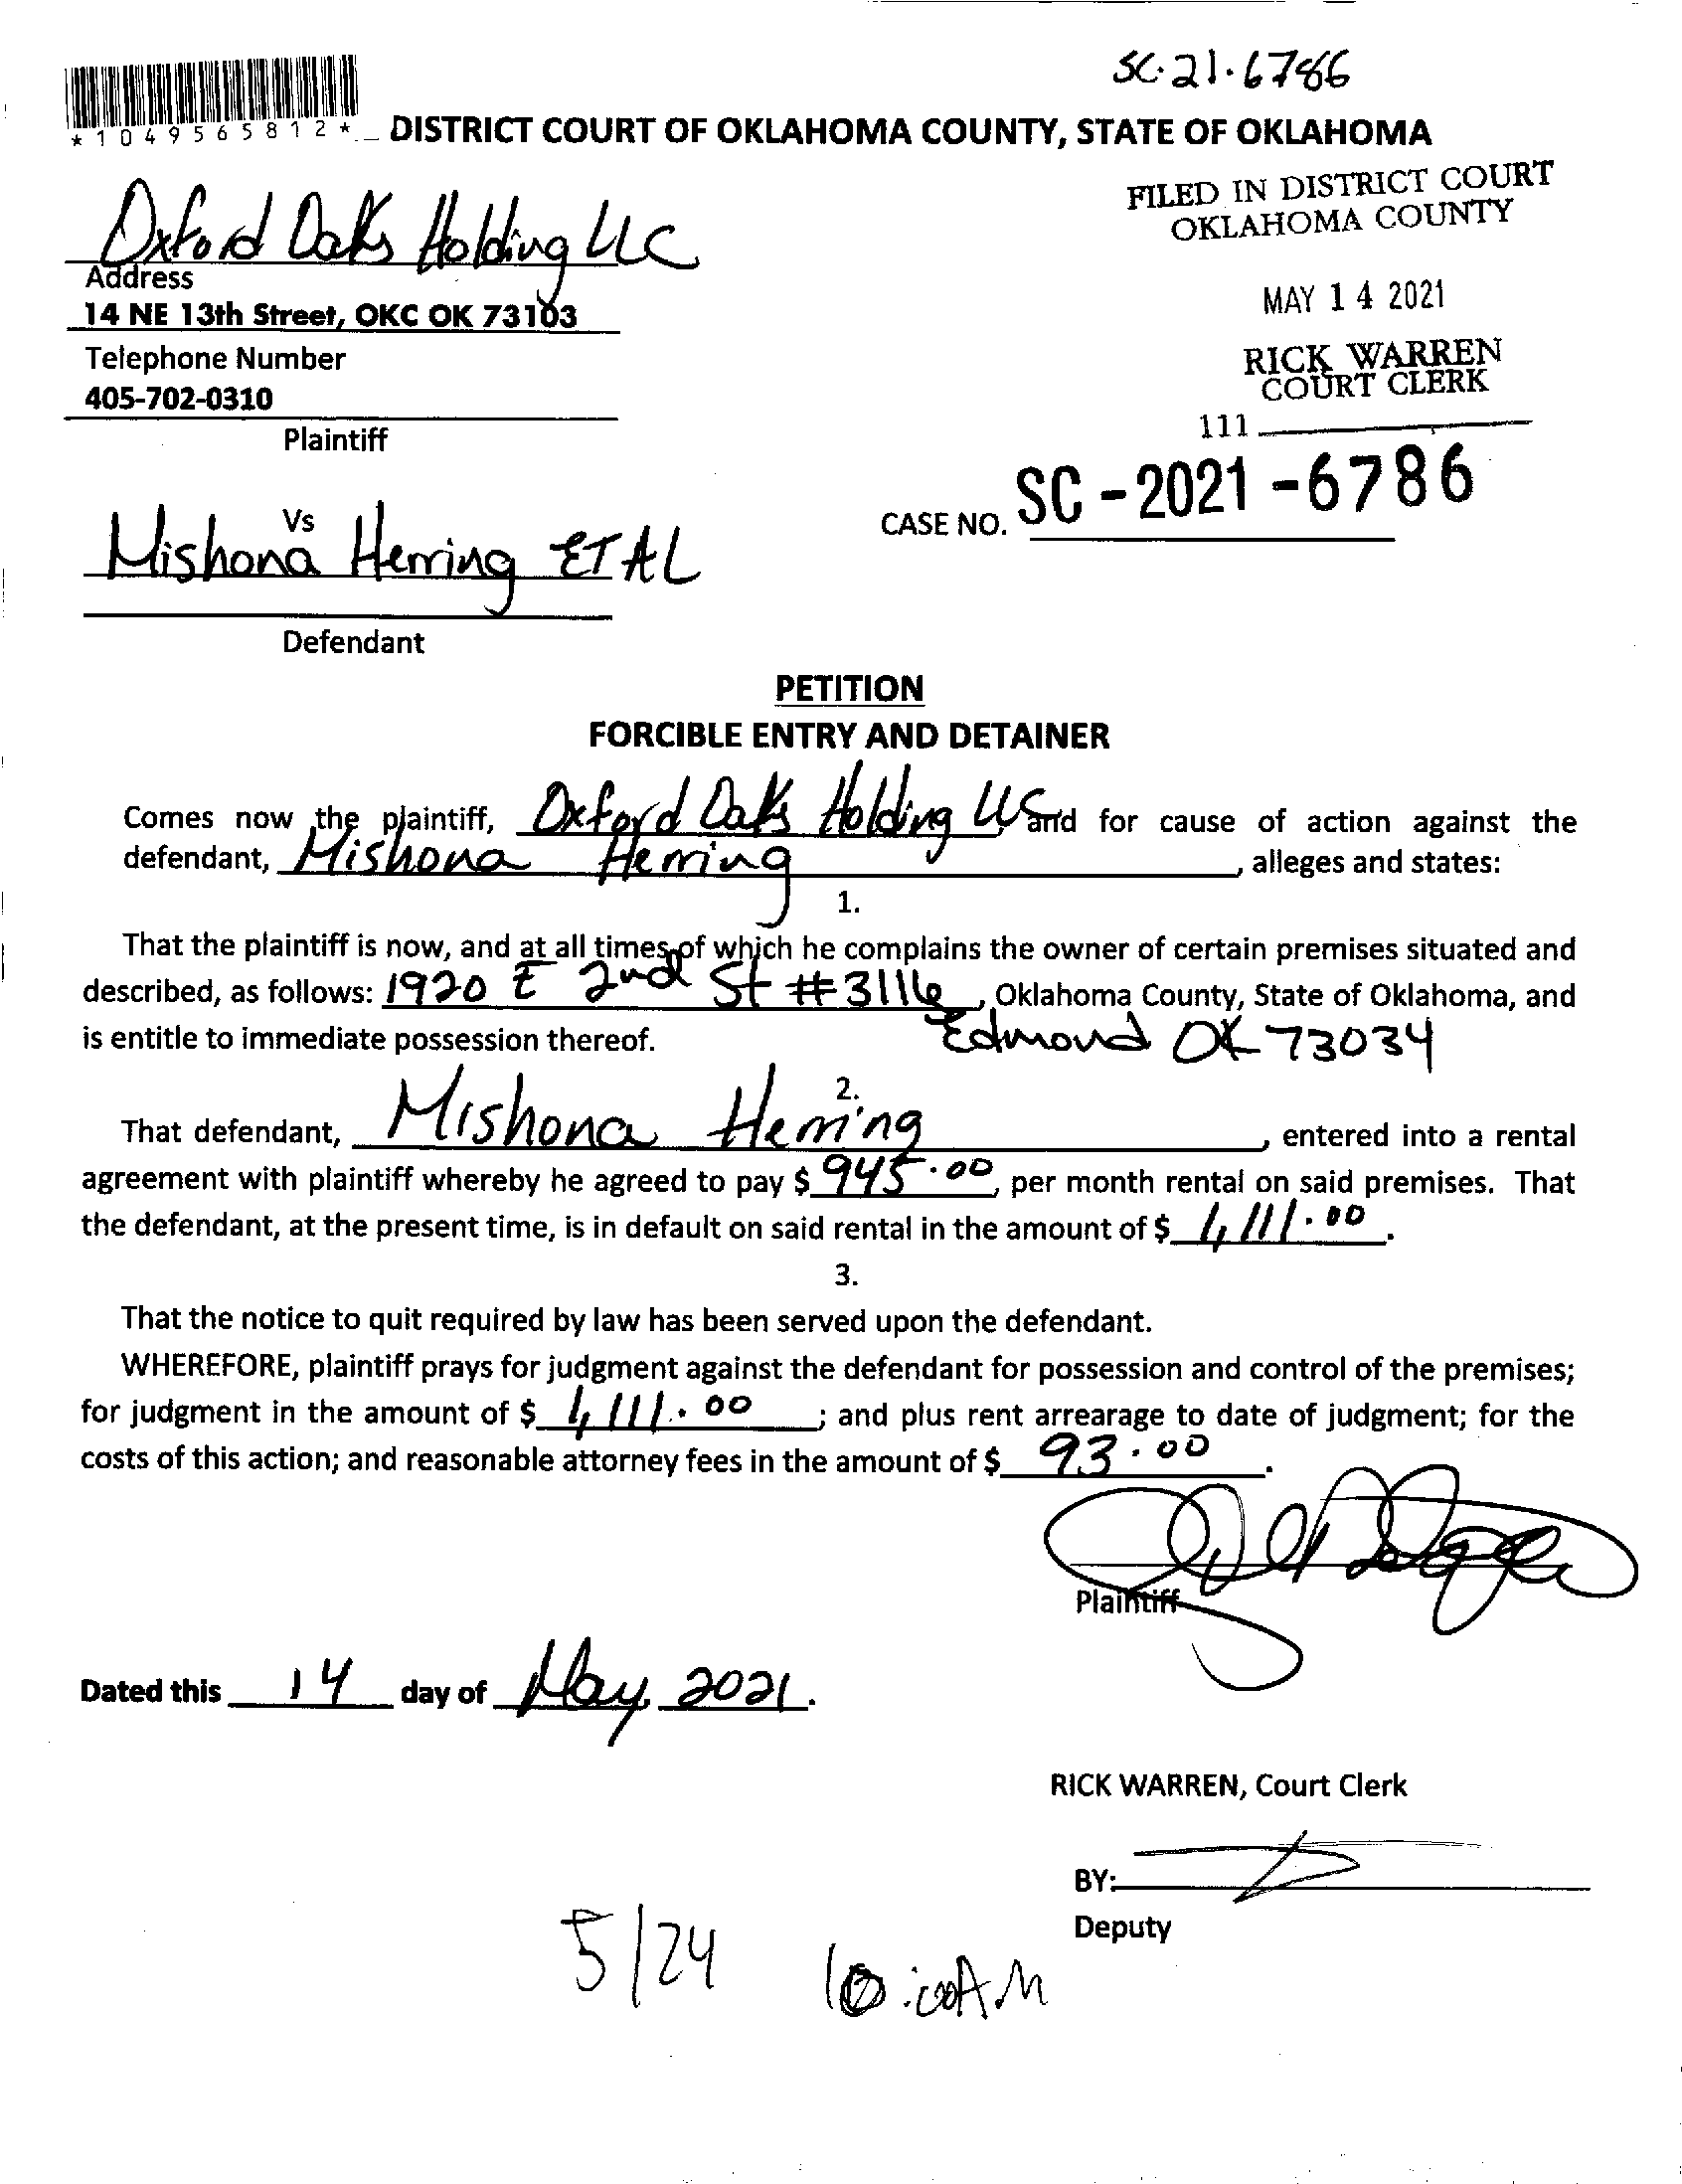 SC-21-6786
*1049565812*
DISTRICT COURT OF OKLAHOMA COUNTY, STATE OF OKLAHOMA
FILED IN DISTRICT COURT
OKLAHOMA COUNTY
Oxford Oaks Holding LLC
Address
14 NE 13th Street, OKC OK 73103
MAY 14 2021
Telephone Number
405-702-0310
RICK WARREN
COURT CLERK
111
Plaintiff
Vs
CASE NO. SC-2021-6786
Mishona Herring ET AL
Defendant
PETITION
FORCIBLE ENTRY AND DETAINER
Comes now the plaintiff, Oxford Oaks Holding LLC and for cause of action against the
defendant, Mishona Herring, alleges and states:
1.
That the plaintiff is now, and at all times of which he complains the owner of certain premises situated and
described, as follows: 1920 E 2nd St #3116, Oklahoma County, State of Oklahoma, and
is entitle to immediate possession thereof. Edmond OK 73034
2.
That defendant, Mishona Herring, entered into a rental
agreement with plaintiff whereby he agreed to pay $ 945.00, per month rental on said premises. That
the defendant, at the present time, is in default on said rental in the amount of $ 1,111.00.
3.
That the notice to quit required by law has been served upon the defendant.
WHEREFORE, plaintiff prays for judgment against the defendant for possession and control of the premises;
for judgment in the amount of $ 1,111.00; and plus rent arrearage to date of judgment; for the
costs of this action; and reasonable attorney fees in the amount of $ 93.00.
Plaintiff
Dated this 14 day of May 2021.
RICK WARREN, Court Clerk
BY:
Deputy
5/24 10:00A.M